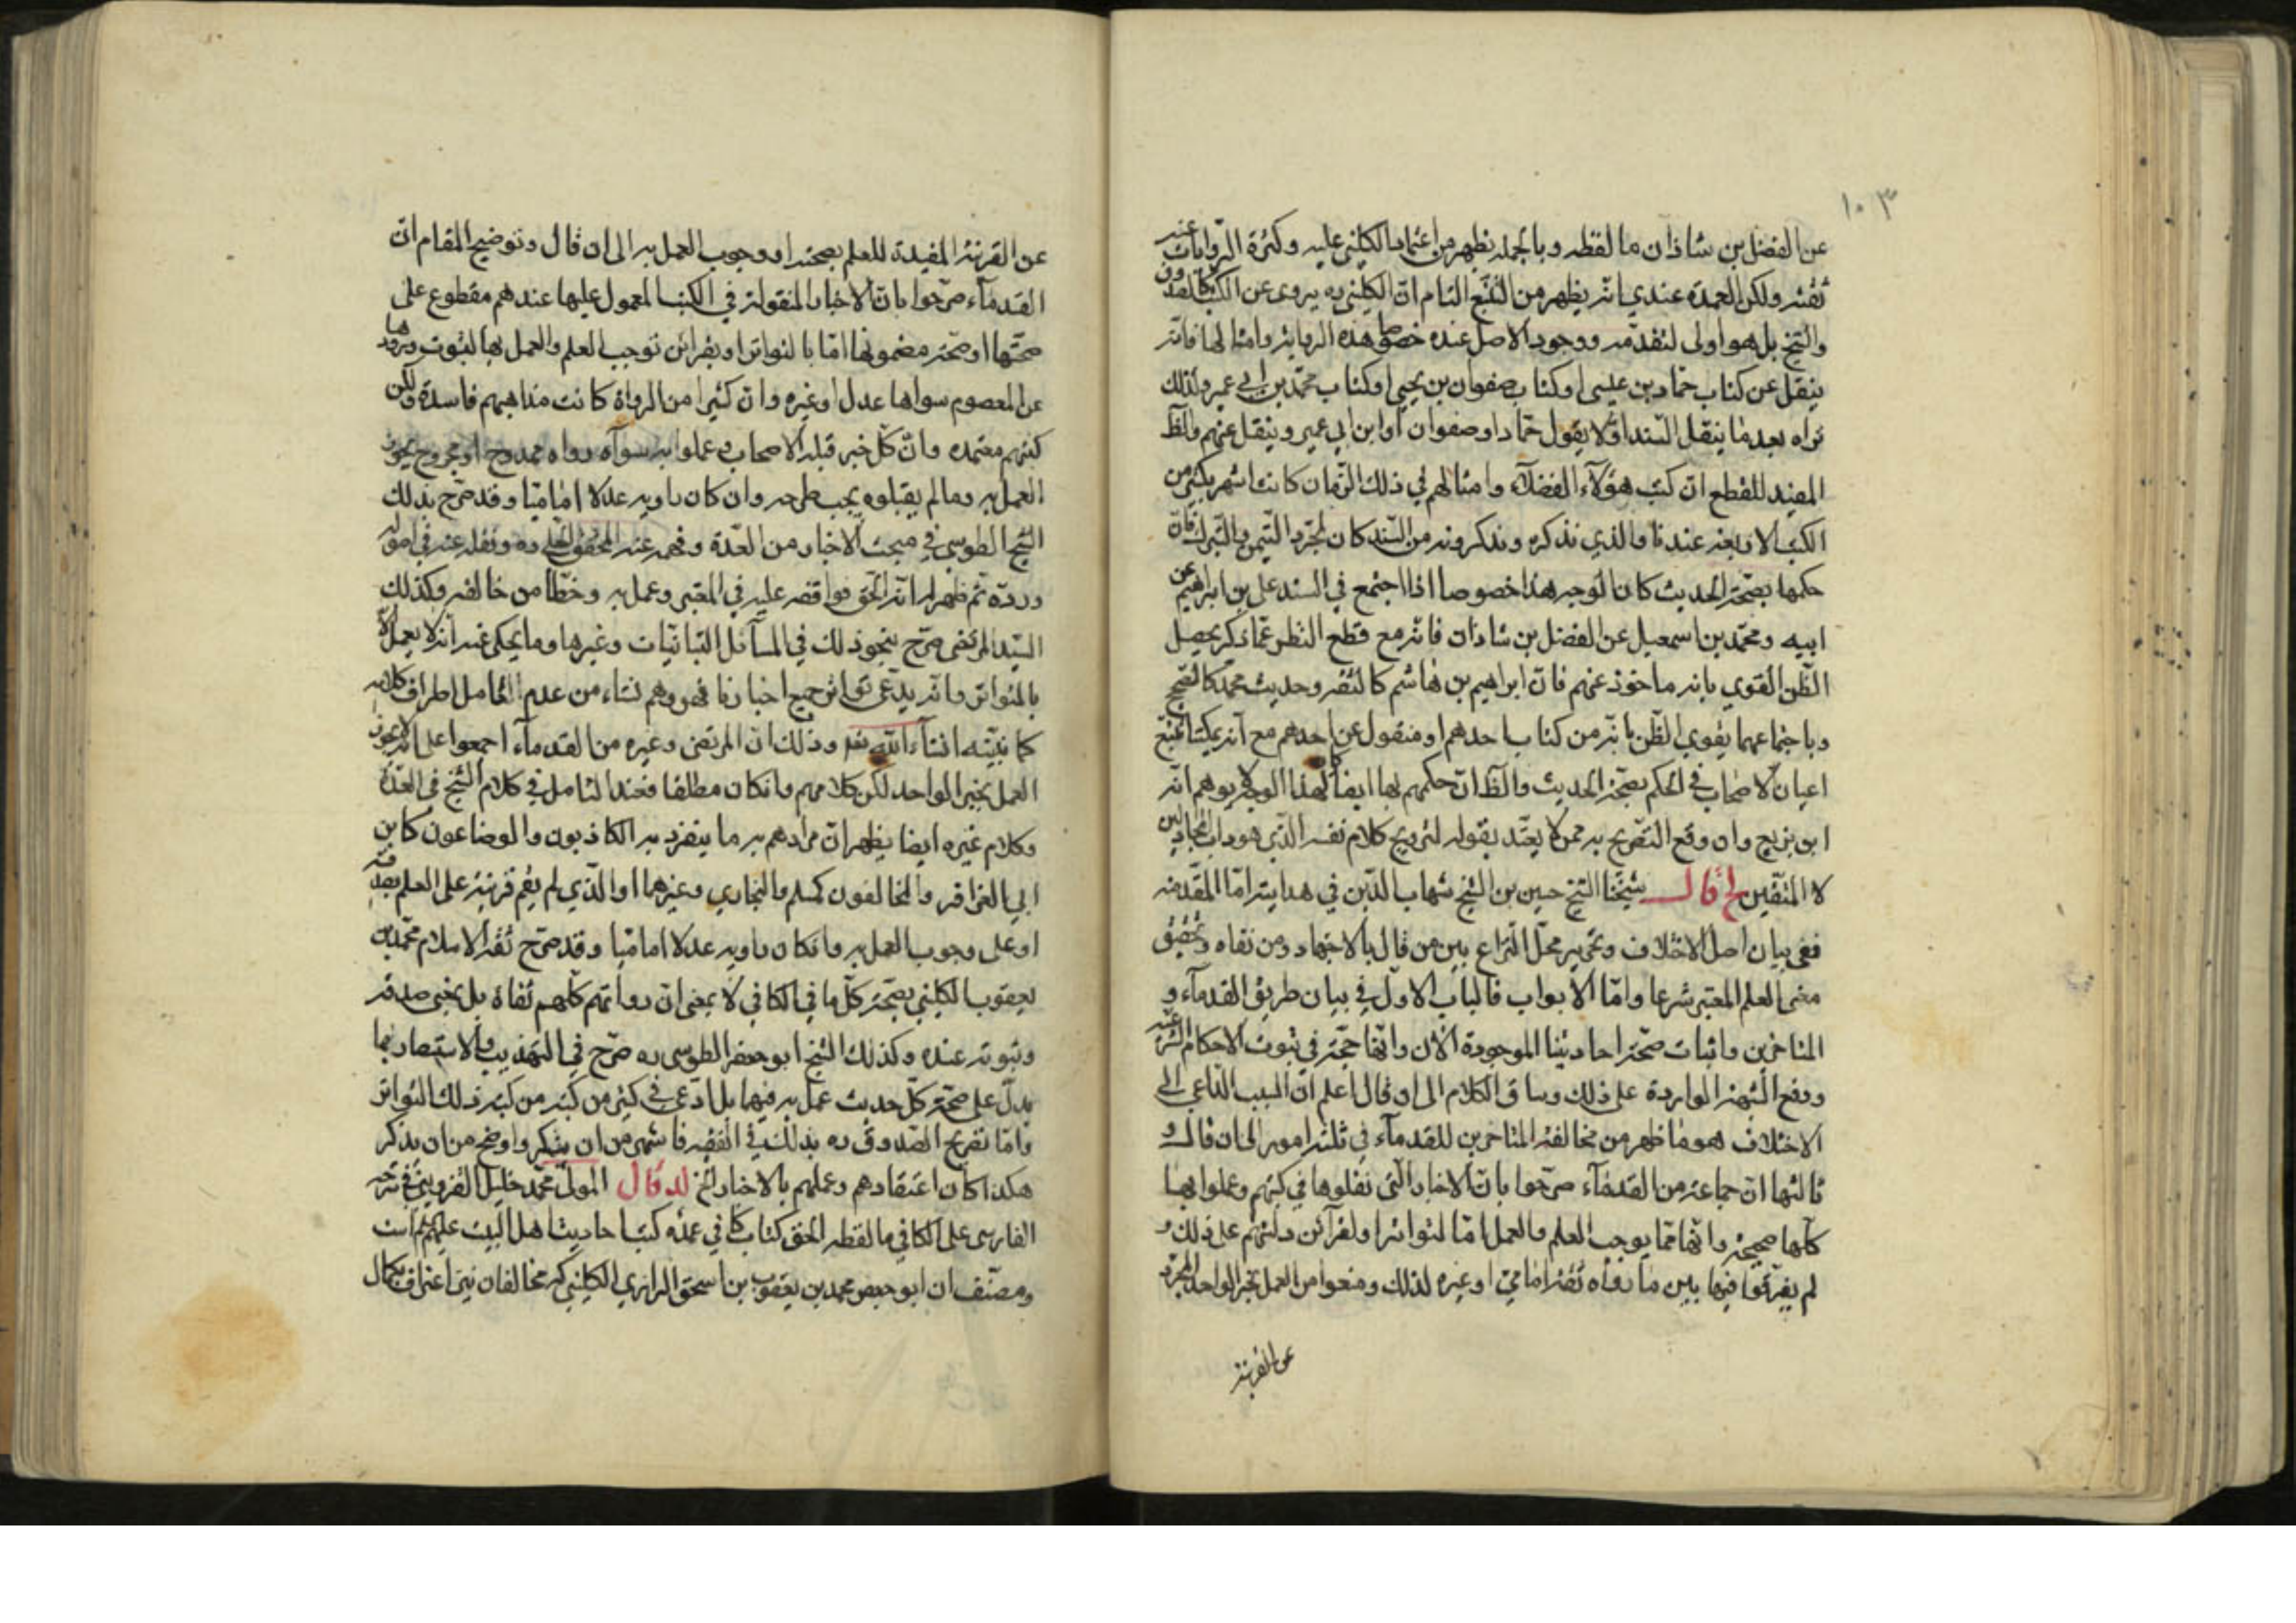 ١٠٣
عن الفضل بن شاذان ما لفظه وبالجملة يظهر من اعتماد الكليني عليه وكثرة الروايات عنه
ثقته ولكن العمدة عندي انه يظهر من التتبع التام ان الكليني ره يروى عن الكتب كالصدوق
والشيخ بل هو اولى لتقدمه ووجود الاصل عنده خصوصا هذه الرواية وامثالها فانه
ينقل عن كتاب حماد بن عيسى او كتاب صفوان بن يحيى او كتاب محمد بن ابي عمير ولذلك
تراه بعد ما ينقل السند اولا يقول حماد او صفوان او ابن ابي عمير وينقل عنهم والظ
المفيد للقطع ان كتب هؤلاء الفضلاء وامثالهم في ذلك الزمان كانت اشهر بكثير من
الكتب الاربعة عندنا والذي نذكره ويذكرونه من السند كان لمجرد التيمن والتبرك فان
حكمها بصحة الحديث كان لوجه هذا خصوصا اذا اجتمع في السند علي بن ابراهيم عن
ابيه ومحمد بن اسمعيل عن الفضل بن شاذان فانه مع قطع النظر عما ذكر يحصل
الظن القوي بانه ماخوذ عنهم فان ابراهيم بن هاشم كالثقة وحديث محمد كالصحيح
وباجتماعهما يقوي الظن بانه من كتاب احدهم او منقول عن احدهم مع انه يمكننا تتبع
اعيان الاصحاب في الحكم بصحة الحديث والظ ان حكمهم بها ايضا كان لهذا الوجه لا توهم انه
ابن بزيع وان وقع التصريح به ممن لا يعتد بقوله لترويج كلام نفسه الذي هو داب المجادلين
لا المتقين لج قال شيخنا الشيخ حسين بن الشيخ شهاب الدين في هدايته اما المقدمة
ففي بيان اصل الاختلاف وتحرير محل النزاع بين من قال بالاجتهاد ومن نفاه وتحقيق
معنى العلم المعتبر شرعا واما الابواب فالباب الاول في بيان طريق القدماء و
المتاخرين واثبات صحة احاديثنا الموجودة الان وانها حجة في ثبوت الاحكام الشرعية
ودفع الشبهة الواردة على ذلك وساق الكلام الى ان قال اعلم ان السبب الداعي الى
الاختلاف هو ما ظهر من مخالفة المتاخرين للقدماء في ثلثة امور الى ان قال و
ثالثها ان جماعة من القدماء صرحوا بان الاخبار التي نقلوها في كتبهم وعملوا بها
كلها صحيحة وانها مما يوجب العلم والعمل اما لتواترها او لقرائن دلتهم على ذلك و
لم يفرقوا فيها بين ما رواه ثقة امامي او غيره لذلك ومنعوا من العمل بخبر الواحد المجرد
عن القرينة
عن القرينة المفيدة للعلم بصحته او وجوب العمل به الى ان قال وتوضيح المقام ان
القدماء صرحوا بان الاخبار المنقولة في الكتب المعمول عليها عندهم مقطوع على
صحتها او صحة مضمونها اما بالتواتر او بقرائن توجب العلم والعمل بها لثبوت ورودها
عن المعصوم سواها عدل او غيره وان كثيرا من الرواة كانت مذاهبهم فاسدة ولكن
كتبهم معتمدة وان كل خبر قبله الاصحاب وعملوا به سواء رواه ممدوح او مجروح يجوز
العمل به وما لم يقبلوه يجب طرحه وان كان راويه عدلا اماميا وقد صرح بذلك
الشيخ الطوسي في مبحث الاخبار من العدة وفهمه عنه المحقق الحلي ره ونقله عنه في اصوله
ورده ثم ظهر له انه الحق فوافقه عليه في المعتبر وعمل به وخطا من خالفه وكذلك
السيد المرتضى صرح بنحو ذلك في المسائل التبانيات وغيرها وما يحكى عنه انه لا يعمل الا
بالمتواتر وانه يدعى تواتر جميع اخبارنا فهو وهم نشاء من عدم التامل اطراف كلامه
كما نبينه انشاء الله تعه وذلك ان المرتضى وغيره من القدماء اجمعوا على انه لا يجوز
العمل بخبر الواحد لكن كلامهم وان كان مطلقا فعند التامل في كلام الشيخ في العدة
وكلام غيره ايضا يظهر ان مرادهم به ما ينفرد به الكاذبون والوضاعون كابن
ابي العزاقر والمخالفون كمسلم والبخاري وغيرهما او الذي لم يقم قرينة على العلم بصدقه
او على وجوب العمل به وان كان راويه عدلا اماميا وقد صرح ثقة الاسلام محمد بن
يعقوب الكليني بصحة كل ما في الكافي لا بمعنى ان رواتهم كلهم ثقاة بل بمعنى صدقه
وثبوته عنده وكذلك الشيخ ابو جعفر الطوسى ره صرح في التهذيب والاستبصار بما
يدل على صحة كل حديث عمل به فيهما بل ادعى في كثير من كتبه من كتبه ذلك التواتر
واما تصريح الصدوق ره بذلك في الفقيه فاشهر من ان ينكر واوضح من ان يذكر
هكذا كان اعتقادهم وعملهم بالاخبار الخ لد قال المولى محمد خليل القزويني في شرحه
الفارسى على الكافي ما لفظه الحق كتاب كافي عمده كتب احاديث اهل البيت عليهم السلم است
ومصنف ان ابو جعفر محمد بن يعقوب بن اسحق الرازي الكليني كه مخالفان نيز اعتراف بكمال